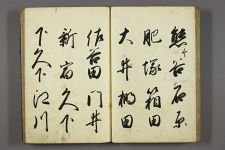 熊谷 石原
肥塚 箱田
大井 柳田
佐谷田 門井
新宿 久下
下久下 江川